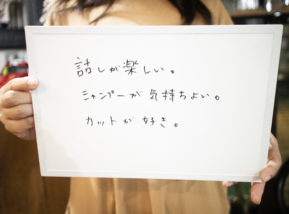 話しが楽しい。
シャンプーが気持ちよい。
カットが好き。